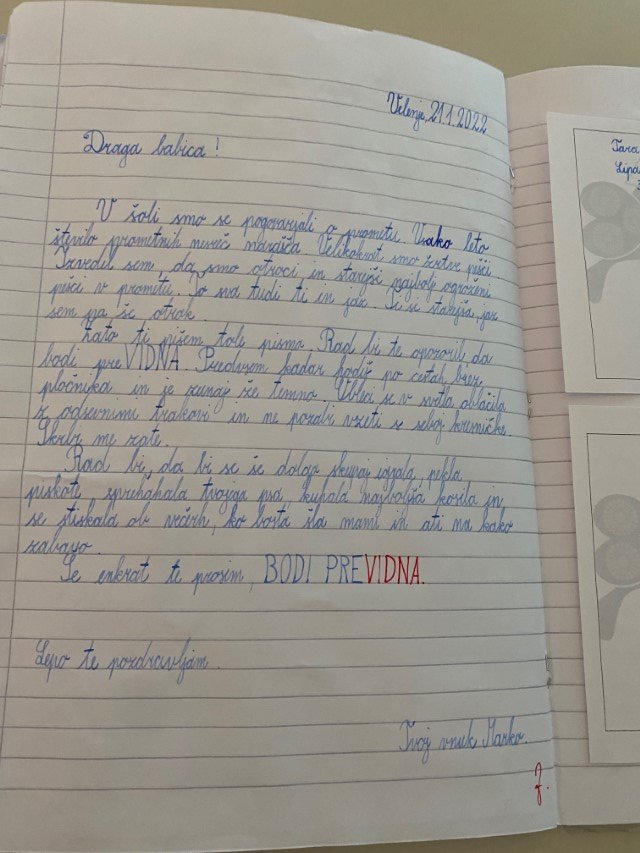 Velenje, 21.1.2022
Draga babica!
V šoli smo se pogovarjali o prometu. Vsako leto
število prometnih nesreč narašča. Velikokrat smo žrtve pešci
Izvedel sem, da smo otroci in starejši najbolj ogroženi
pešci v prometu. To sva tudi ti in jaz. Ti si starejša, jaz
sem pa še otrok.
Zato ti pišem tole pismo. Rad bi te opozoril, da
bodi preVIDNA. Predvsem kadar hodiš po cestah brez
pločnika in je zunaj že temno. Obleci se v svetla oblačila
z odsevnimi trakovi in ne pozabi vzeti s seboj kresničke.
Skrbi me zate.
Rad bi, da bi se še dolgo skupaj igrala, pekla
piškote, sprehajala tvojega psa, kuhala najboljša kosila in
se stiskala ob večerih, ko bosta šla mami in ati na kako
zabavo.
Še enkrat te prosim, BODI PREVIDNA.
Lepo te pozdravljam.
Tvoj vnuk Marko.
Tara
Lipa